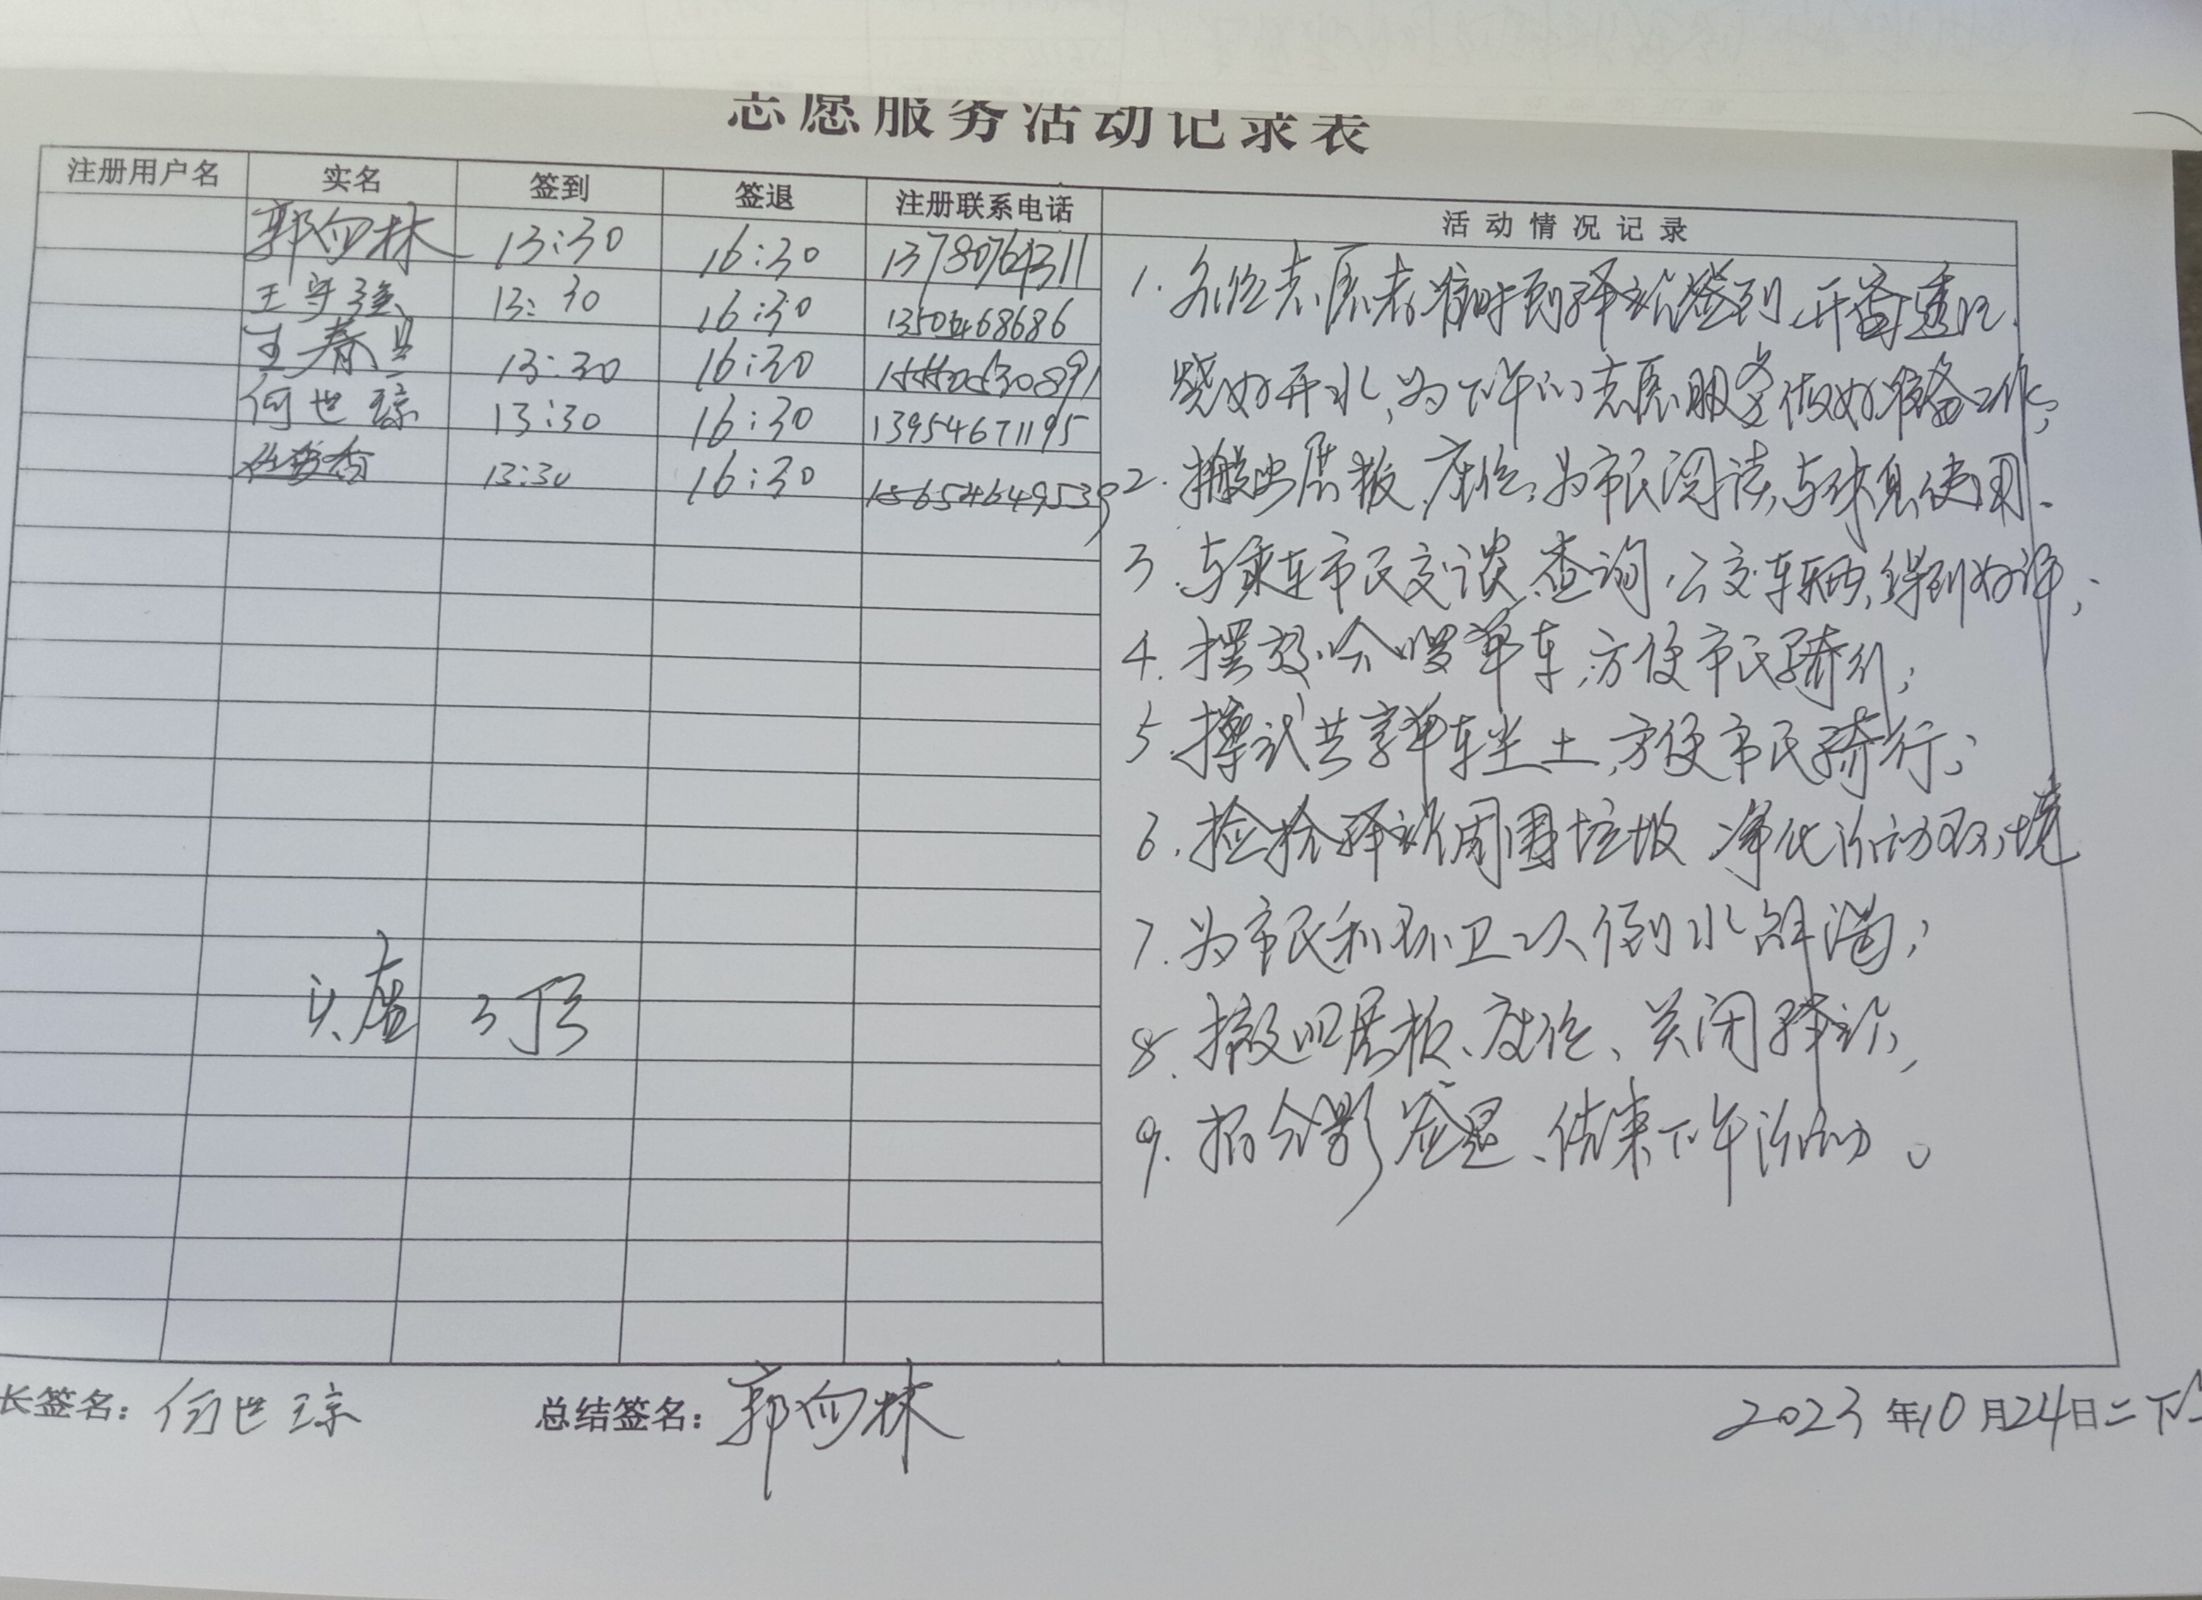 志愿服务活动记录表
注册用户名 实名 签到 签退 注册联系电话 活动情况记录
郭向林 13:30 16:30 13780764311
王守强 13:30 16:30 13505468686
王春 13:30 16:30
何世琼 13:30 16:30 13954671195
13:30 16:30 18654649539
1. 各位志愿者准时到驿站签到、开窗透气、
烧好开水,为下午的志愿服务做好准备工作;
2. 搬出展板、座位,为市民阅读与休息使用、
3. 与乘车市民交谈、查询公交车辆,得到好评;
4. 摆放哈啰单车,方便市民骑行;
5. 擦试共享单车尘土,方便市民骑行;
6. 捡拾驿站周围垃圾 净化活动环境
7. 为市民和环卫工人倒水解渴;
8. 撤回展板、座位、关闭驿站,
9. 拍合影 签退、结束下午活动。
长签名: 何世琼 总结签名: 郭向林 2023年10月24日二下